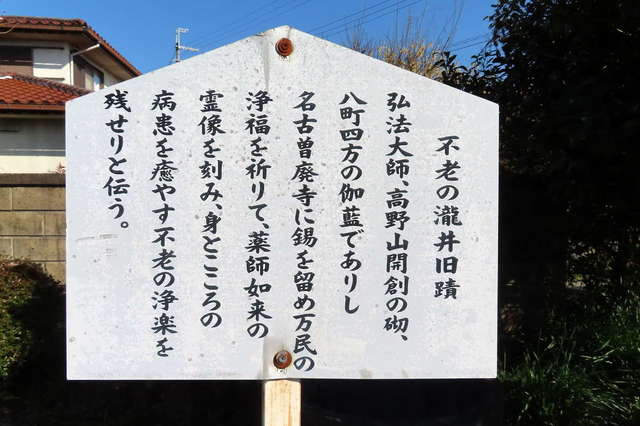 不老の瀧井旧蹟
弘法大師、高野山開創の砌、
八町四方の伽藍でありし
名古曽廃寺に錫を留め万民の
浄福を祈りて、薬師如来の
霊像を刻み、身とこころの
病患を癒やす不老の浄楽を
残せりと伝う。